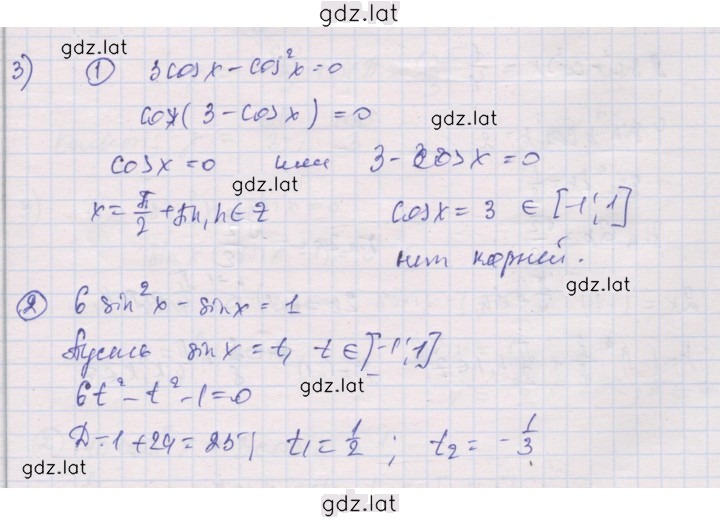 gdz.lat
gdz.lat
3) ① 3cosx - cos²x = 0
cosx(3 - cosx) = 0
gdz.lat
cosx = 0 или 3 - cosx = 0
gdz.lat
x = π/2 + πn, n ∈ Z cosx = 3 ∈ [-1; 1]
нет корней.
gdz.lat
② 6 sin²x - sinx = 1
Пусть sinx = t, t ∈ [-1; 1]
6t² - t² - 1 = 0
gdz.lat
Д = 1 + 24 = 25; t₁ = 1/2; t₂ = -1/3
gdz.lat
gdz.lat